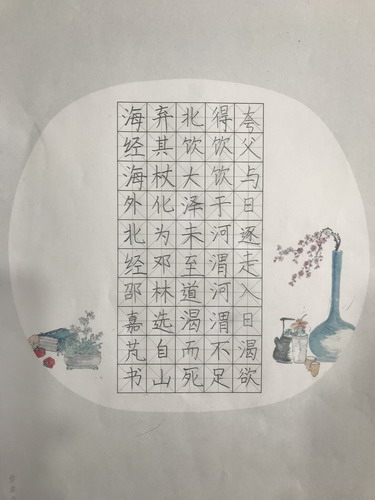 夸父与日逐走入日渴欲
得饮饮于河渭河渭不足
北饮大泽未至道渴而死
弃其杖化为邓林选自山
海经海外北经邵嘉芃书